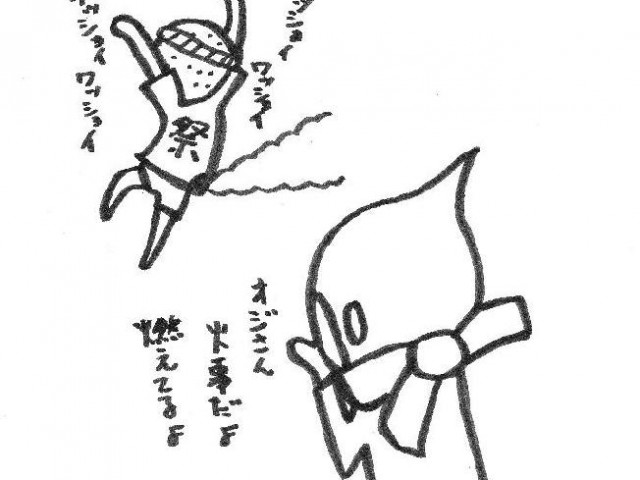 ワッショイ
ワッショイ
ワッショイ
ワッショイ
祭
オジさん
火事だよ
燃えてるよ